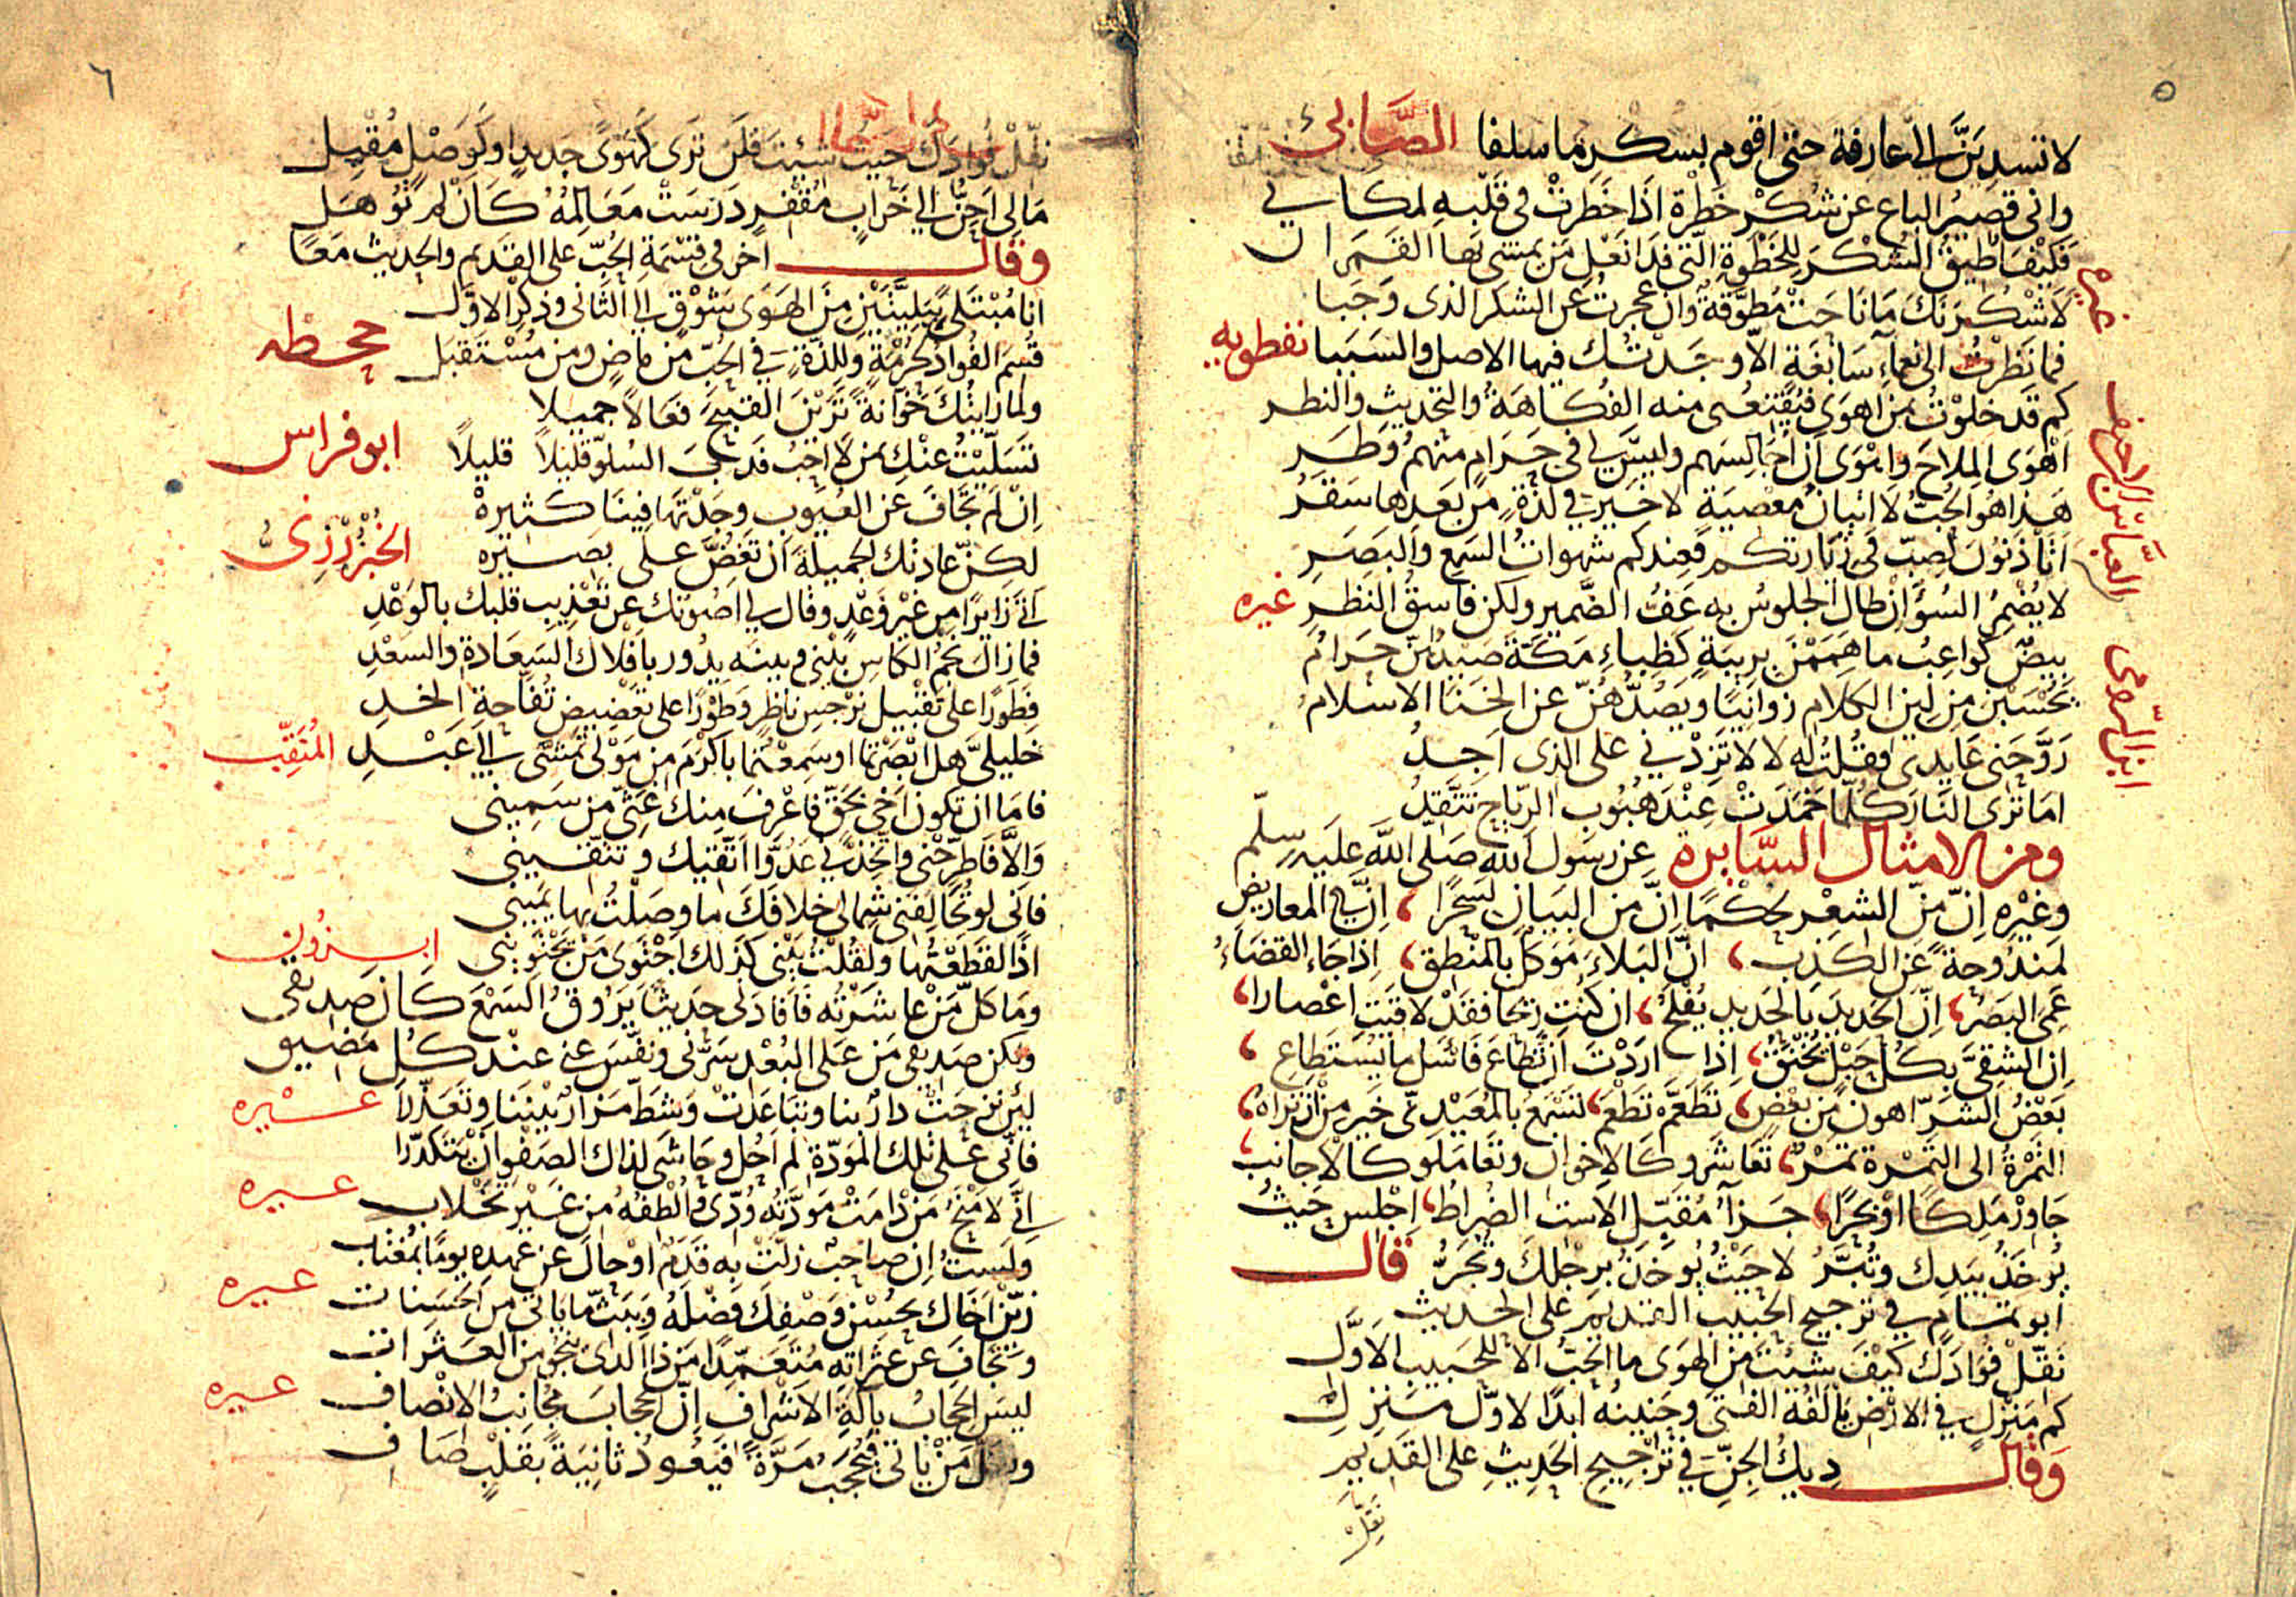 ٥
لا تسدين الي عارفة حتى اقوم بسكر ما سلفا الصابئ
واني قصير الباع عن شكر خطرة اذا خطرت في قلبه لمكاني
فكيف اطيق الشكر للخطوة التي فدا نعل من يمشي بها القمران
غيره
لاشكرنك ما ناحت مطوقة وان عجزت عن الشكر الذي وجبا
فما نظرت الى نعماء سابغة الا وجدتك فيها الاصل والسببا نفطويه
كم قد خلوت بمن اهوى فيقنعني منه الفكاهة والتحديث والنظر
اهوى الملاح واهوى ان اجالسهم وليس لي في حرام منهم وطر
هذا هو الحب لا اتيان معصية لا خير في لذة من بعدها سقر
العباس بن الاحنف
اتاذنون لصب في زيارتكم فعندكم شهوات السمع والبصر
لا يضمر السؤ ان طال الجلوس به عف الضمير ولكن فاسق النظر غيره
بيض كواعب ما هممن بريبة كظباء مكة صيدهن حرام
يحسبن من لين الكلام زوانيا ويصدهن عن الخنا الاسلام
ابن الرومي
روحني عايدي فقلت له لا لا تزدني على الذي اجد
اما ترى النار كلما خمدت عند هبوب الرياح تتقد
ومن الامثال السايرة عن رسول الله صلى الله عليه سلم
وغيره ان من الشعر لحكما ان من البيان لسحرا ، ان في المعاريض
لمندوحة عن الكذب ، ان البلاء موكل بالمنطق ، اذا جاء القضاء
عمي البصر ، ان الحديد بالحديد يفلح ، ان كنت ريحا فقد لاقيت اعصارا ،
ان الشقي بكل حبل يخنق ، اذا اردت ان تطاع فاسل ما يستطاع ،
بعض الشر اهون من بعض ، تطعم تطعم ، تسمع بالمعيدي خير من ان تراه ،
التمرة الى التمرة تمر ، تعاشرو كالاخوان وتعاملو كالاجانب ،
جاور ملكا او بحرا ، جزآ مقبل الاست الضراط ، اجلس حيث
يوخذ بيدك وتبر لا حيث يوخذ برجلك وتجر قال
ابو تمام في ترجيح الحبيب القديم على الحديث
نقل فوادك كيف شئت من الهوى ما الحب الا للحبيب الاول
كم منزل في الارض يالفه الفتى وحنينه ابدا لاول منزل
وقال ديك الجن في ترجيح الحديث على القديم
نقل
٦
نقل فوادك حيث شئت فلن ترى كهوى جديد او كوصل مقبل
مالي احن الي خراب مقفر درست معالمه كان لم توهل
وقال اخر في قسمة الحب على القديم والحديث معا
انا مبتلى ببليتين من الهوى شوق الى الثاني وذكر الاول
قسم الفواد لحرمة وللذة في الحب من ماض ومن مستقبل جحظه
ولما رايتك خوانة ترين القبيح فعالا جميلا
تسليت عنك بمن لا احب فدب السلو قليلا قليلا ابو فراس
ان لم تجاف عن العيوب وجدتها فينا كثيره
لكن عادتك الجميلة ان تغض على بصيره الخبزرزي
اتى زايرا من غير وعد وقال لي اصونك عن تعذيب قلبك بالوعد
فما زال نجم الكاس بيني وبينه يدور بافلاك السعادة والسعد
فطورا على تقبيل نرجس ناظر وطورا على تعضيض تفاحة الخد
خليلي هل ابصرتما او سمعتما باكرم من مولى تمشى الى عبد المثقب
فاما ان تكون اخي بحق فاعرف منك غثي من سميني
والا فاطرحني واتخذني عدوا اتقيك وتتقيني
فاني لو تخالفني شمالي خلافك ما وصلت بها يميني
اذا لقطعتها ولقلت بيني كذلك اجتوى من يجتويني
وما كل من عاشرته فافادني حديثا يروق السمع كان صديقي
ولكن صديقي من على البعد سرني ونفس عني عند كل مضيق
لئن نزحت دار بنا وتباعدت وشط مزار بيننا وتعذرا غيره
فاني على تلك المودة لم احل وحاشى لذاك الصفو ان يتكدرا
اني لامنح من دامت مودته ودي والطفه من غير تخلاب غيره
ولست ان صاحب زلت به قدم او حال عن عهده يوما بمغتاب
زين اخاك بحسن وصفك فضله وببث ما ياتي من الحسنات غيره
وتجاف عن عثراته متعمدا من ذا الذي ينجو من العثرات
ليس الحجاب بآلة الاشراف ان الحجاب مجانب الانصاف غيره
من ياتي فيحجب مرة فيعود ثانية بقلب صاف